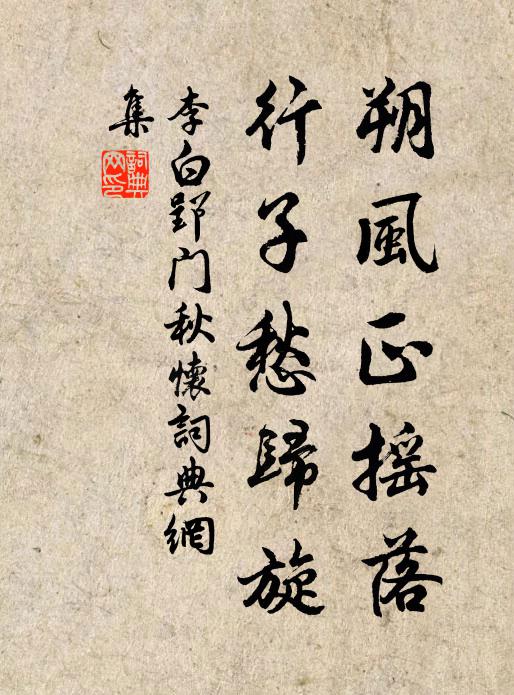 朔風正摇落
行子愁歸旋
李白郢门秋懷詞典網
集
詞典
网印